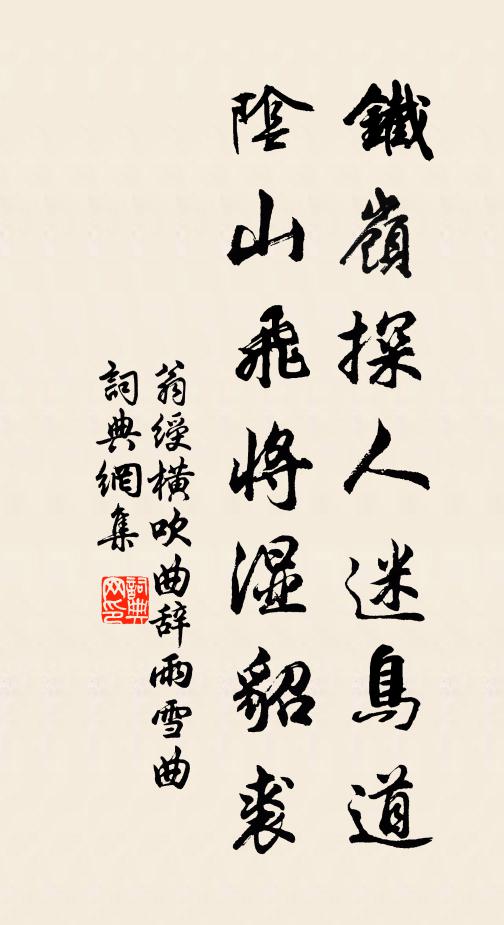 鐵嶺探人迷鳥道
陰山飛將濕貂裘
翁綬橫吹曲辭雨雪曲
詞典網集
詞典網印